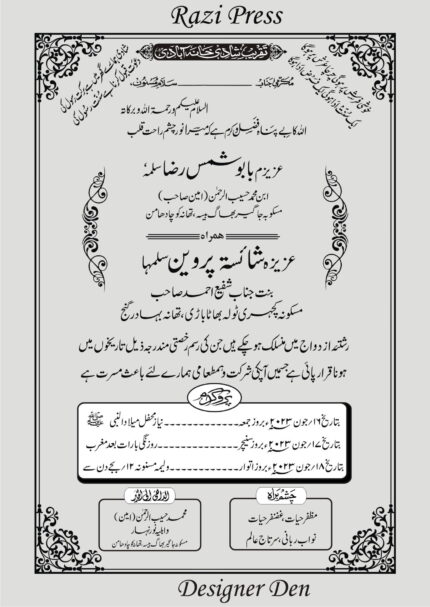 Razi Press
تقریب شادی خانہ آبادی
مکرمی جناب ـــــــــــــــــــــ سلام مسنون
السلام علیکم ورحمۃ اللہ وبرکاتہ
اللہ کا بے پناہ فضل و کرم ہے کہ میرا نور چشم راحت قلب
عزیزم بابو شمس رضا سلمہٗ
ابن محمد حسیب الرحمٰن (امین صاحب)
مسکونہ جاگیر بھاگ بیسہ، تھانہ کوچادھامن
ہمراہ
عزیزہ شائستہ پروین سلمہا
بنت جناب شفیع احمد صاحب
مسکونہ کچہری ٹولہ بھاٹاباڑی، تھانہ بہادر گنج
رشتۂ ازدواج میں منسلک ہو چکے ہیں جن کی رسم رخصتی مندرجہ ذیل تاریخوں میں
ہونا قرار پائی ہے جسمیں آپکی شرکت و ہمطعامی ہمارے لئے باعث مسرت ہے
پروگرام
بتاریخ ۱۶؍جون ۲۰۲۳ء بروز جمعہ ---------------- نیاز محفل میلاد النبی ﷺ
بتاریخ ۱۷؍جون ۲۰۲۳ء بروز سنیچر ---------------- روانگی بارات بعد مغرب
بتاریخ ۱۸؍جون ۲۰۲۳ء بروز اتوار ---------------- ولیمہ مسنونہ ۱۲؍بجے دن سے
چشم براہ
مظفر حیات، غضنفر حیات
نواب ربانی، سرتاج عالم
الداعی الی الخیر
محمد حسیب الرحمٰن (امین)
واہلیہ نور نہار
مسکونہ جاگیر بھاگ بیسہ، تھانہ کوچادھامن
Designer Den